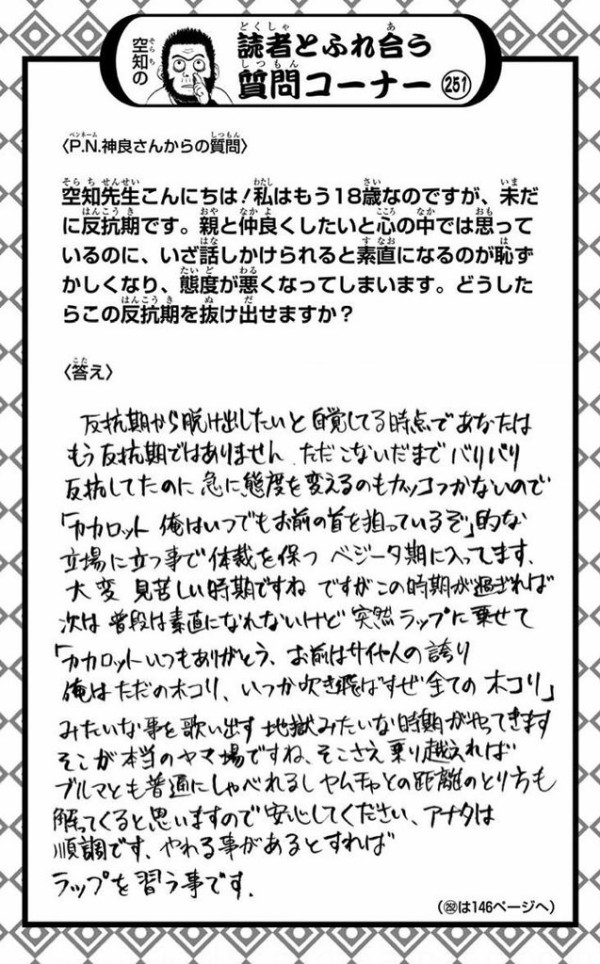 空知の
読者とふれ合う
質問コーナー 251
〈P.N.神良さんからの質問〉
空知先生こんにちは!私はもう18歳なのですが、未だ
に反抗期です。親と仲良くしたいと心の中では思って
いるのに、いざ話しかけられると素直になるのが恥ず
かしくなり、態度が悪くなってしまいます。どうした
らこの反抗期を抜け出せますか?
〈答え〉
反抗期から脱け出したいと自覚してる時点であなたは
もう反抗期ではありません ただこないだまでバリバリ
反抗してたのに急に態度を変えるのもカッコつかないので
「カカロット 俺はいつでもお前の首を狙っているぞ」的な
立場に立つ事で体裁を保つ ベジータ期に入ってます、
大変 見苦しい時期ですね ですがこの時期が過ぎれば
次は 普段は素直になれないけど 突然ラップに乗せて
「カカロットいつもありがとう、お前はサイヤ人の誇り
俺はただの木コリ、いつか吹き飛ばすぜ全ての木コリ」
みたいな事を歌い出す 地獄みたいな時期がやってきます
そこが本当のヤマ場ですね、そこさえ乗り越えれば
ブルマとも普通にしゃべれるし ヤムチャとの距離のとり方も
解ってくると思いますので安心してください、アナタは
順調です、やれる事があるとすれば
ラップを習う事です.
(252は146ページへ)